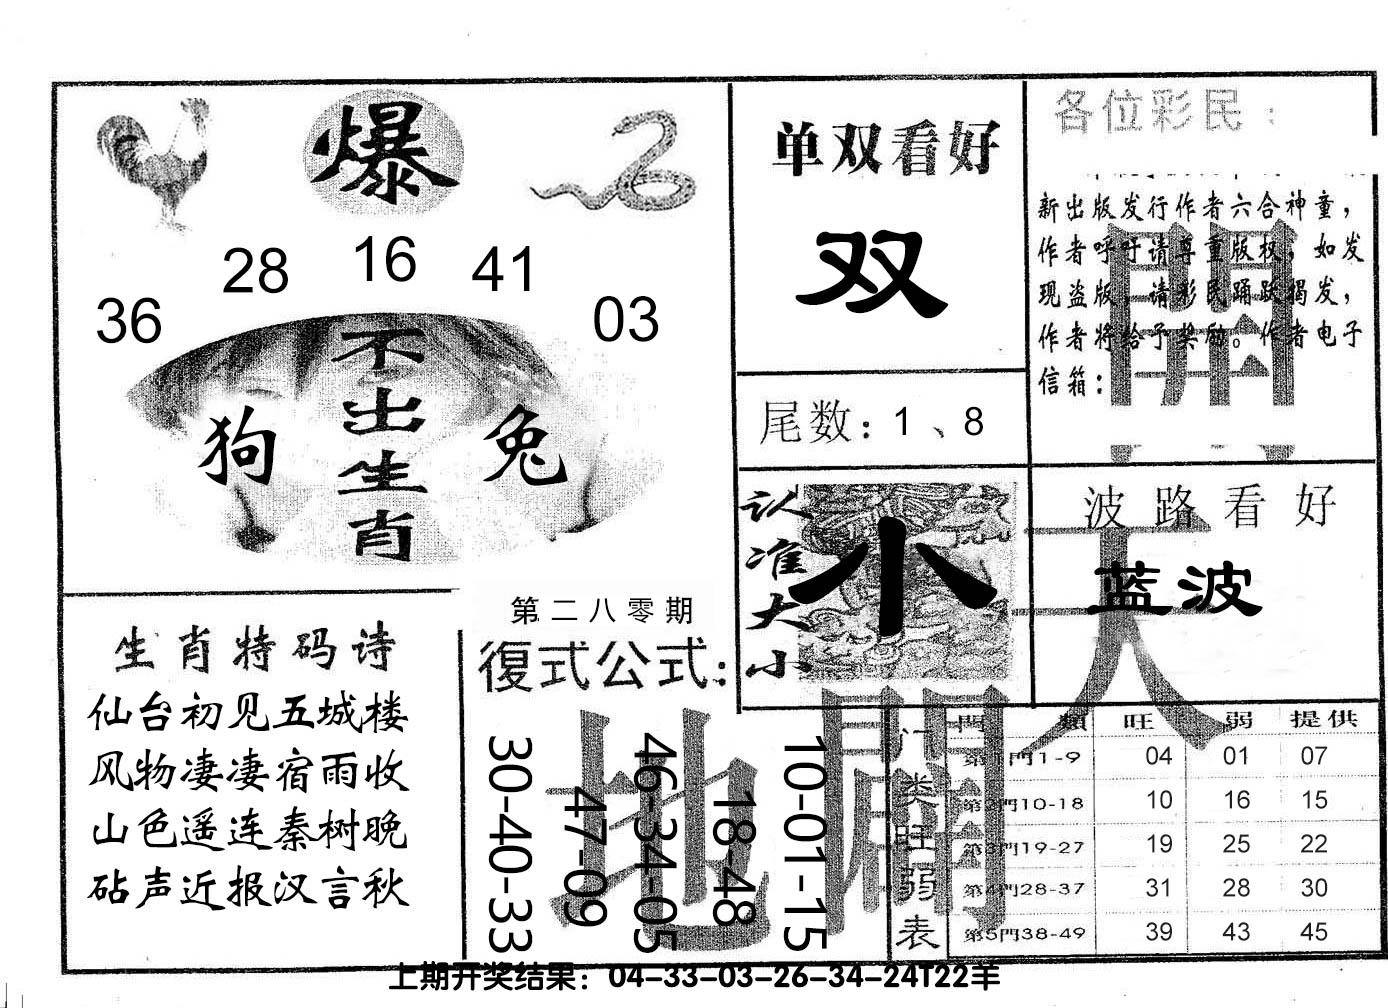 爆
36 28 16 41 03
不出生肖
狗 兔
单双看好
双
尾数: 1、8
各位彩民：
新出版发行作者六合神童，
作者呼吁请尊重版权，如发
现盗版，请彩民踊跃揭发，
作者将给予奖励。作者电子
信箱：
開
认准大小
小
波路看好
蓝波
天
生肖特码诗
仙台初见五城楼
风物凄凄宿雨收
山色遥连秦树晚
砧声近报汉言秋
第二八零期
復式公式:
30-40-33
47-09
46-34-05
18-48
10-01-15
地
門類 旺 弱 提供
门类旺弱表
第1門1-9 04 01 07
第2門10-18 10 16 15
第3門19-27 19 25 22
第4門28-37 31 28 30
第5門38-49 39 43 45
上期开奖结果：04-33-03-26-34-24T22羊